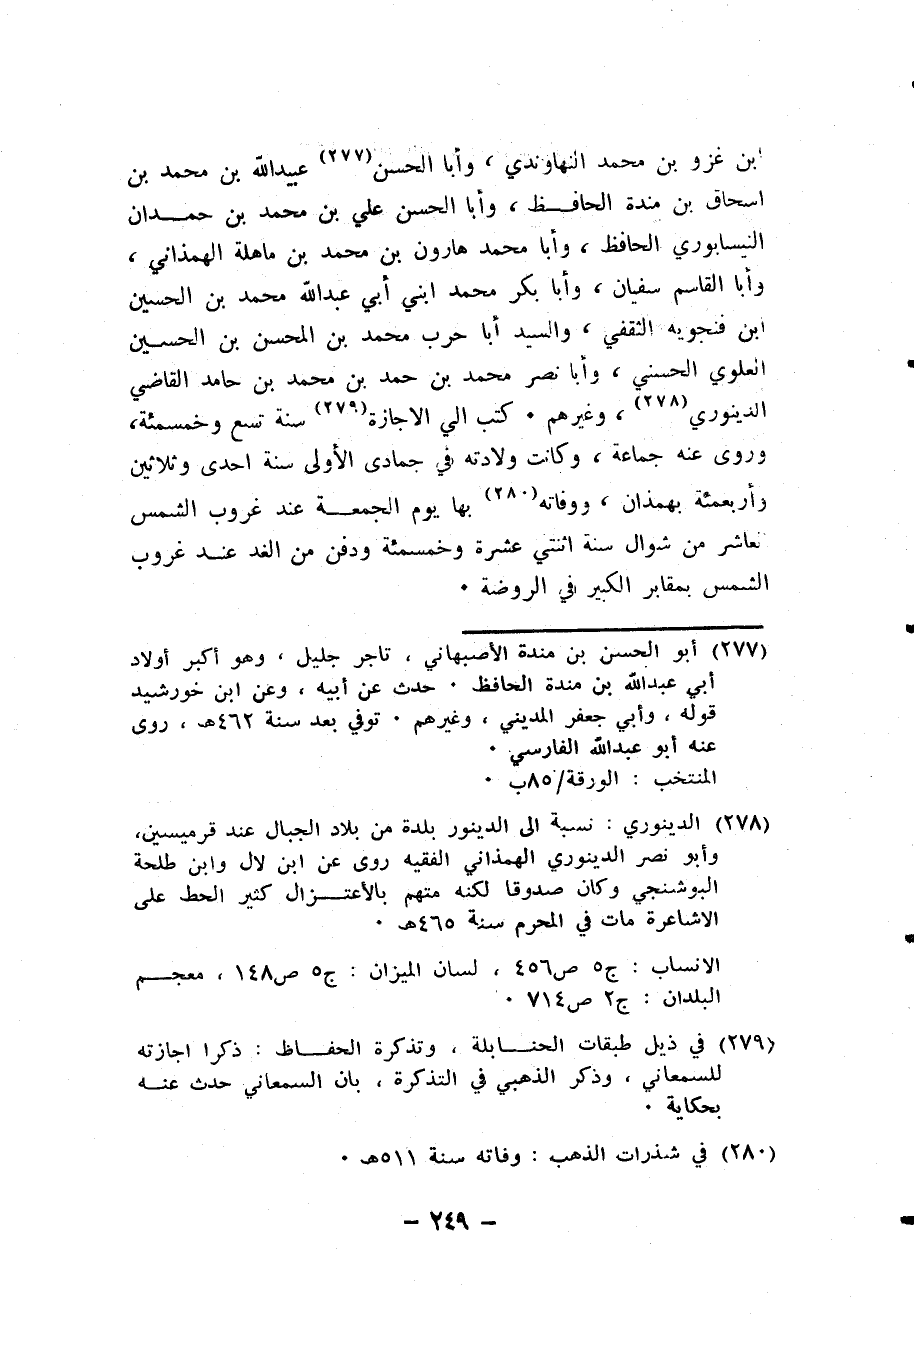 ابن غزو بن محمد النهاوندي ، وأبا الحسن(٢٧٧) عبيدالله بن محمد بن
اسحاق بن مندة الحافـــظ ، وأبا الحسن علي بن محمد بن حمـــدان
النيسابوري الحافظ ، وأبا محمد هارون بن محمد بن ماهلة الهمذاني ،
وأبا القاسم سفيان ، وأبا بكر محمد ابني أبي عبدالله محمد بن الحسين
ابن فنجويه الثقفي ، والسيد أبا حرب محمد بن المحسن بن الحســين
العلوي الحسني ، وأبا نصر محمد بن حمد بن محمد بن حامد القاضي
الدينوري(٢٧٨) ، وغيرهم ٠ كتب الي الاجازة(٢٧٩) سنة تسع وخمسمئة،
وروى عنه جماعة ، وكانت ولادته في جمادى الأولى سنة احدى وثلاثين
وأربعمئة بهمذان ، ووفاته(٢٨٠) بها يوم الجمعـــة عند غروب الشمس
عاشر من شوال سنة اثنتي عشرة وخمسمئة ودفن من الغد عنــد غروب
الشمس بمقابر الكبير في الروضة ٠
(٢٧٧) أبو الحسن بن مندة الأصبهاني ، تاجر جليل ، وهو أكبر أولاد
أبي عبدالله بن مندة الحافظ ٠ حدث عن أبيه ، وعن ابن خورشيد
قوله ، وأبي جعفر المديني ، وغيرهم ٠ توفي بعد سنة ٤٦٢هـ ، روى
عنه أبو عبدالله الفارسي ٠
المنتخب : الورقة/٨٥ب ٠
(٢٧٨) الدينوري : نسبة الى الدينور بلدة من بلاد الجبال عند قرميسين،
وأبو نصر الدينوري الهمذاني الفقيه روى عن ابن لال وابن طلحة
البوشنجي وكان صدوقا لكنه متهم بالأعتـــزال كثير الحط على
الاشاعرة مات في المحرم سنة ٤٦٥هـ ٠
الانساب : ج٥ ص٤٥٦ ، لسان الميزان : ج٥ ص١٤٨ ، معجـــم
البلدان : ج٢ ص٧١٤ ٠
(٢٧٩) في ذيل طبقات الحنـــابلة ، وتذكرة الحفـــاظ : ذكرا اجازته
للسمعاني ، وذكر الذهبي في التذكرة ، بان السمعاني حدث عنــه
بحكاية ٠
(٢٨٠) في شذرات الذهب : وفاته سنة ٥١١هـ ٠
– ٢٤٩ –